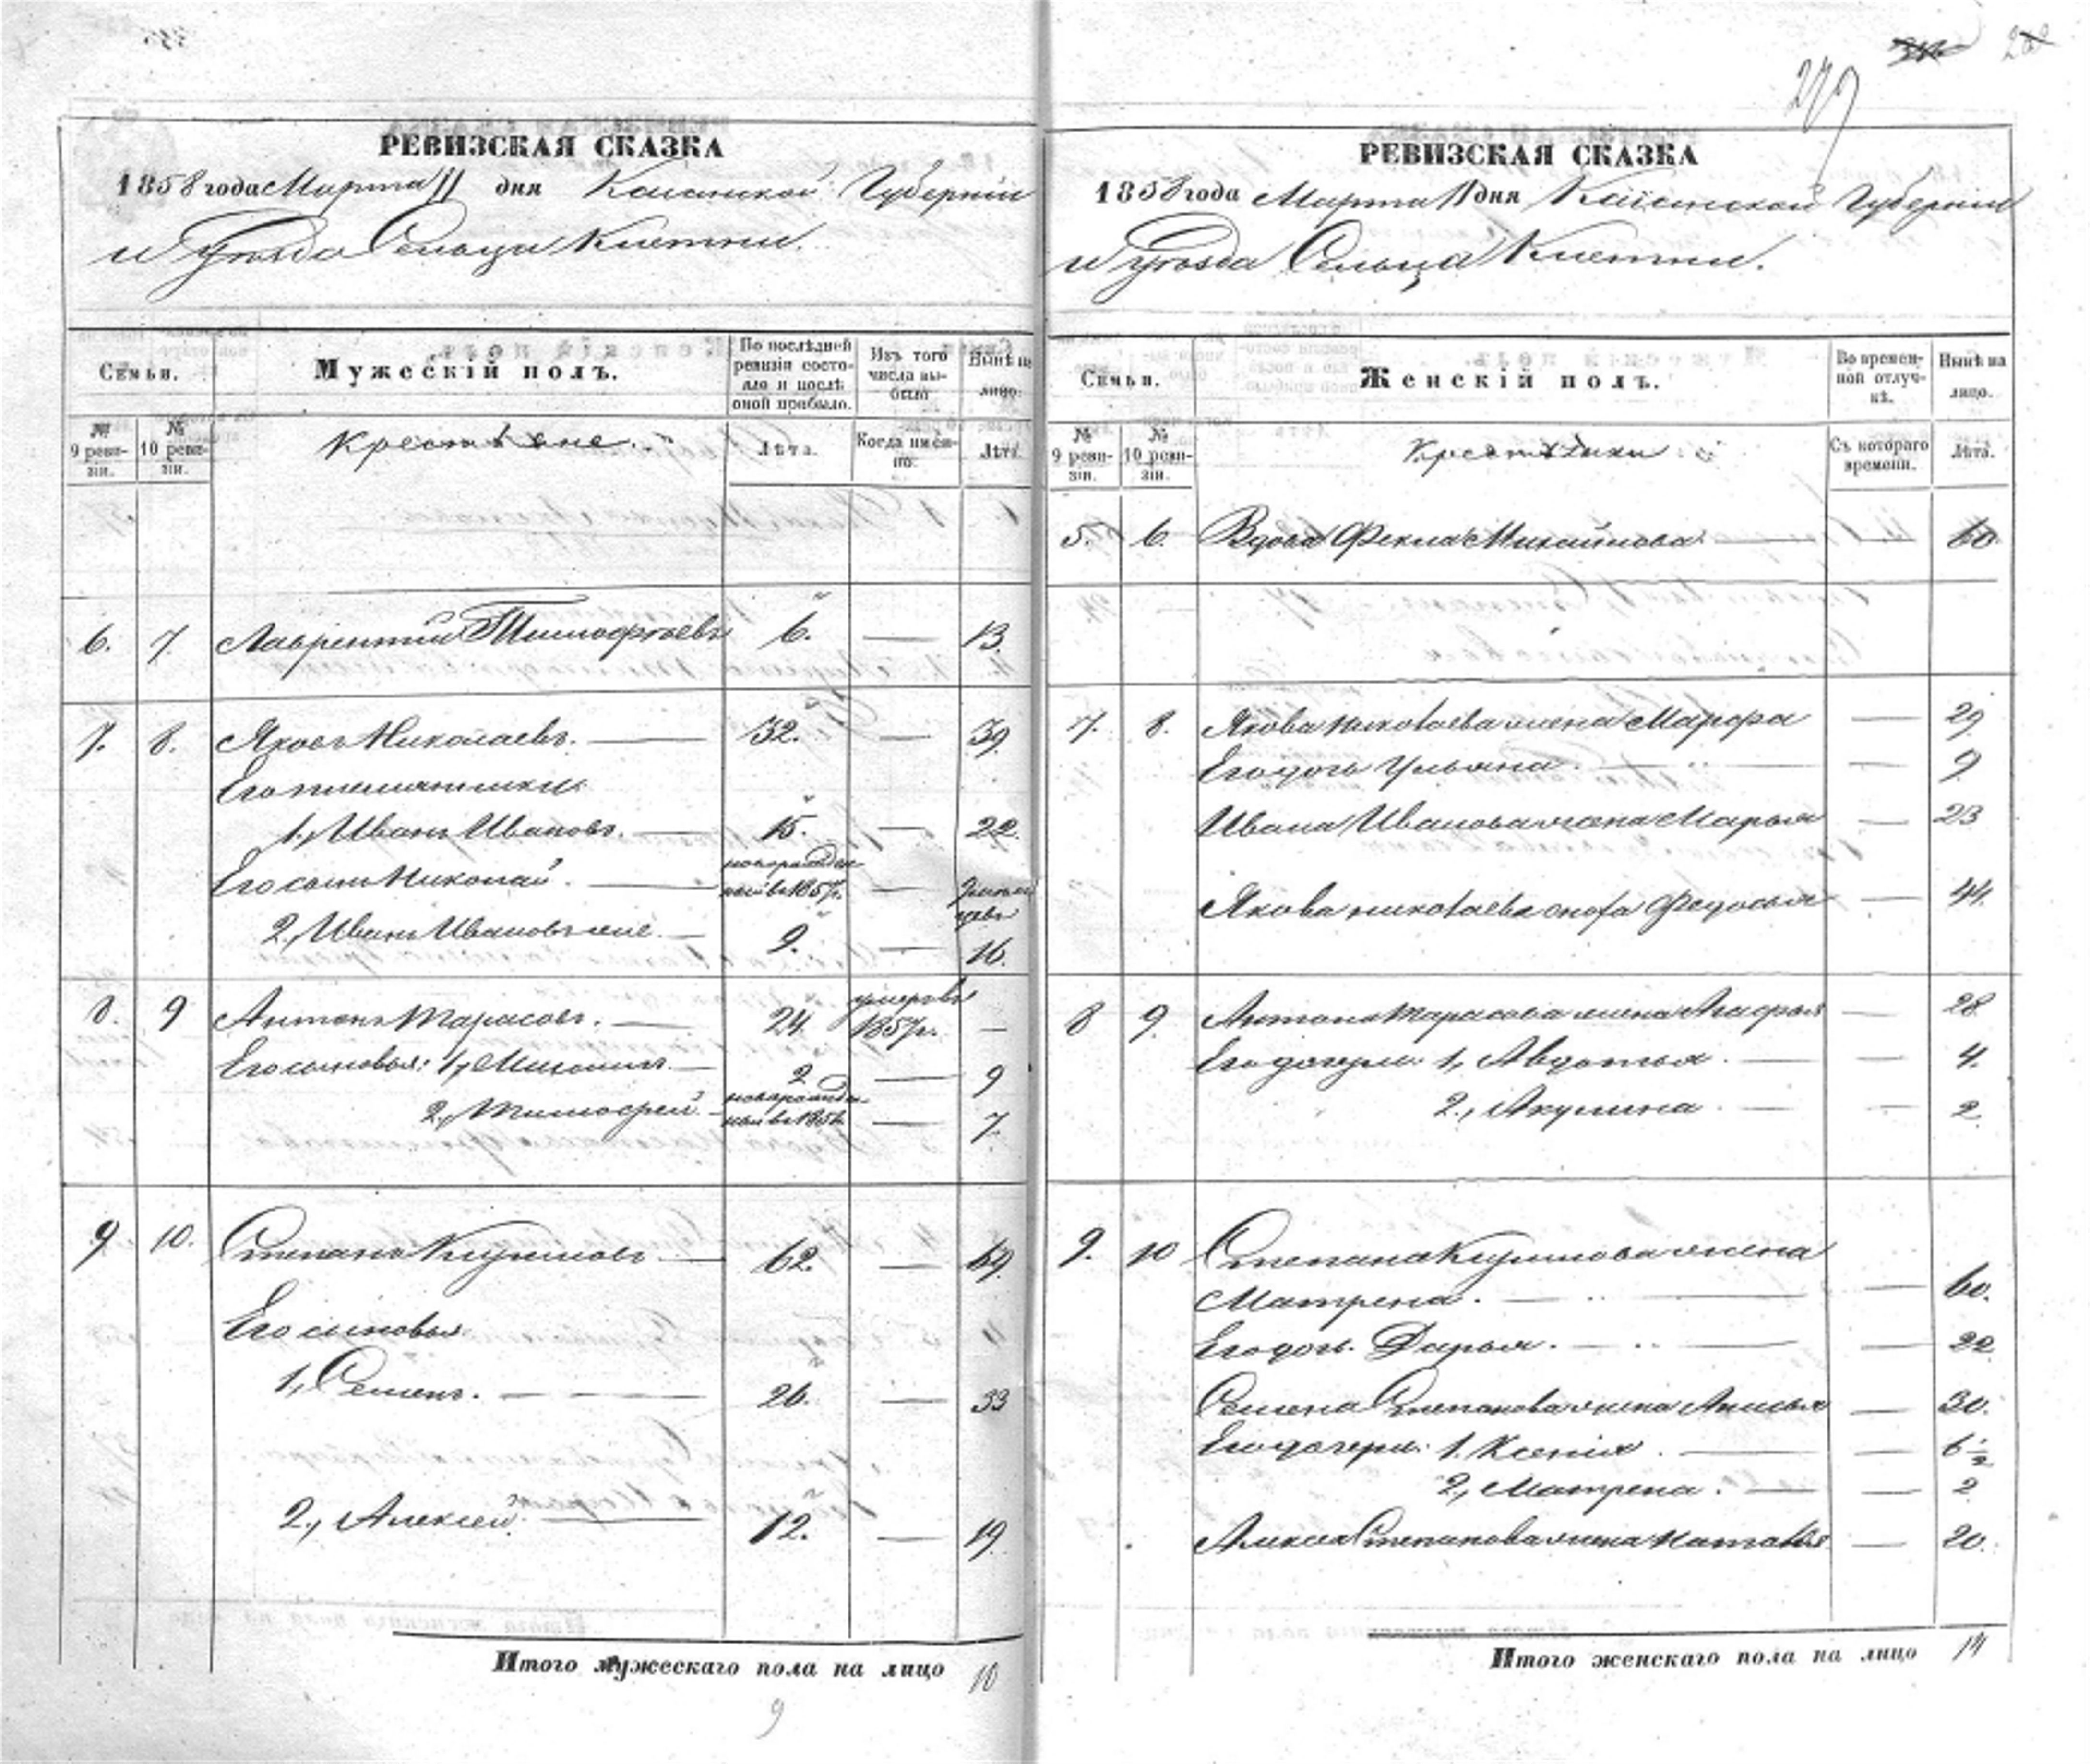 279
РЕВИЗСКАЯ СКАЗКА
1858 года Марта 11 дня Казанской Губерніи
и Уѣзда Сельца Клетни.
Семьи.
Мужескій полъ.
По послѣдней ревизіи состояло и послѣ оной прибыло.
Изъ того числа выбыло
Нынѣ на лицо.
№ 9 ревизіи.
№ 10 ревизіи.
Крестьяне.
Лѣта.
Когда именно.
Лѣта.
6. 7. Лаврентій Тимофѣевъ 6. — 13.
7. 8. Яковъ Николаевъ. — 32. — 39.
Его племянники
1., Иванъ Ивановъ. — 15. — 22.
Его сынъ Николай. — новорожденный въ 1857 г. —
2., Иванъ Ивановъ же. — 9. — 16.
8. 9 Антонъ Тарасовъ. — 24. умеръ въ 1857 г. —
Его сыновья: 1, — 2 — 9
2., Тимофей. — новорожденный въ — 7.
9 10. Степанъ Кириловъ — 62. — 69.
Его сыновья
1, Семенъ. — 26. — 33
2., Алексей. — 12. — 19.
Итого мужескаго пола на лицо 10
9
РЕВИЗСКАЯ СКАЗКА
1858 года Марта 11 дня Казанской Губерніи
и уѣзда Сельца Клетни.
Семьи.
Женскій полъ.
Во временной отлучкѣ.
Нынѣ на лицо.
№ 9 ревизіи.
№ 10 ревизіи.
Крестьянки
Съ котораго времени.
Лѣта.
5. 6. Вдова Фекла Михайлова — — 60
7. 8. Якова Николаева жена Марфа — 29
Его дочь Ульяна. — — 9
Ивана Иванова жена Марья — 23
Якова Николаева сноха Федосья — 44.
8 9. Антона Тарасова жена Агафья — 28
Его дочери: 1, Авдотья. — — 4.
2., Акулина. — — 2.
9. 10 Степана Кирилова жена
Матрена. — — 60.
Его дочь Дарья. — — 22
Семена Степанова жена Анисья — 30.
Его дочери: 1. Ксенія. — — 6 ½
2, Матрена. — — 2
Алексея Степанова жена Наталья — 20.
Итого женскаго пола на лицо 14